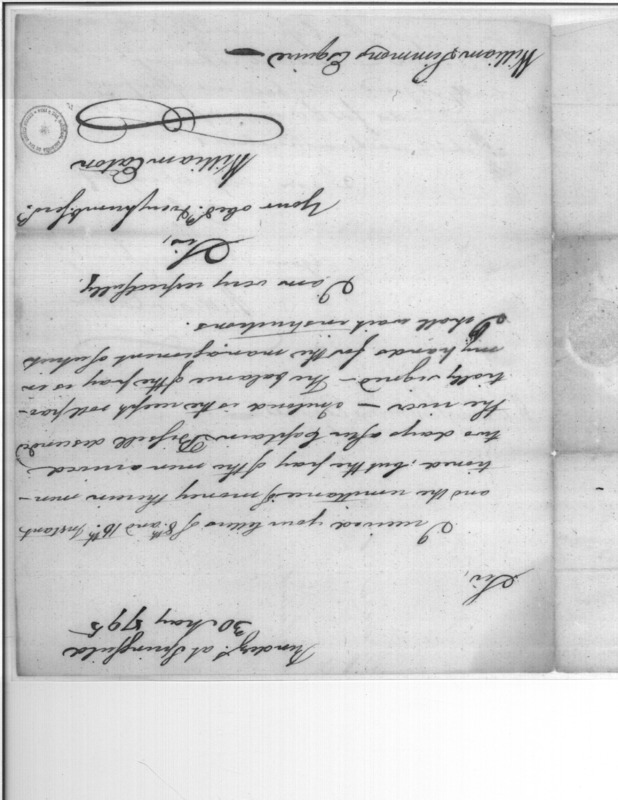 Rendez.s at Springfield
30 May 1795
Sir,
I received your letters of 8th and 16th Instant
and the remittance of money therein men-
tioned, but the pay of the men arrived
two days after Captain Bissell descended
the river — Inclosed is the receipt roll par-
tially signed — The balance of the pay is in
my hands for the management of which
I shall wait instructions.
I am very respectfully,
Sir,
Your obed.t Very humb. serv.t
William Eaton
William Simmons Esquire —